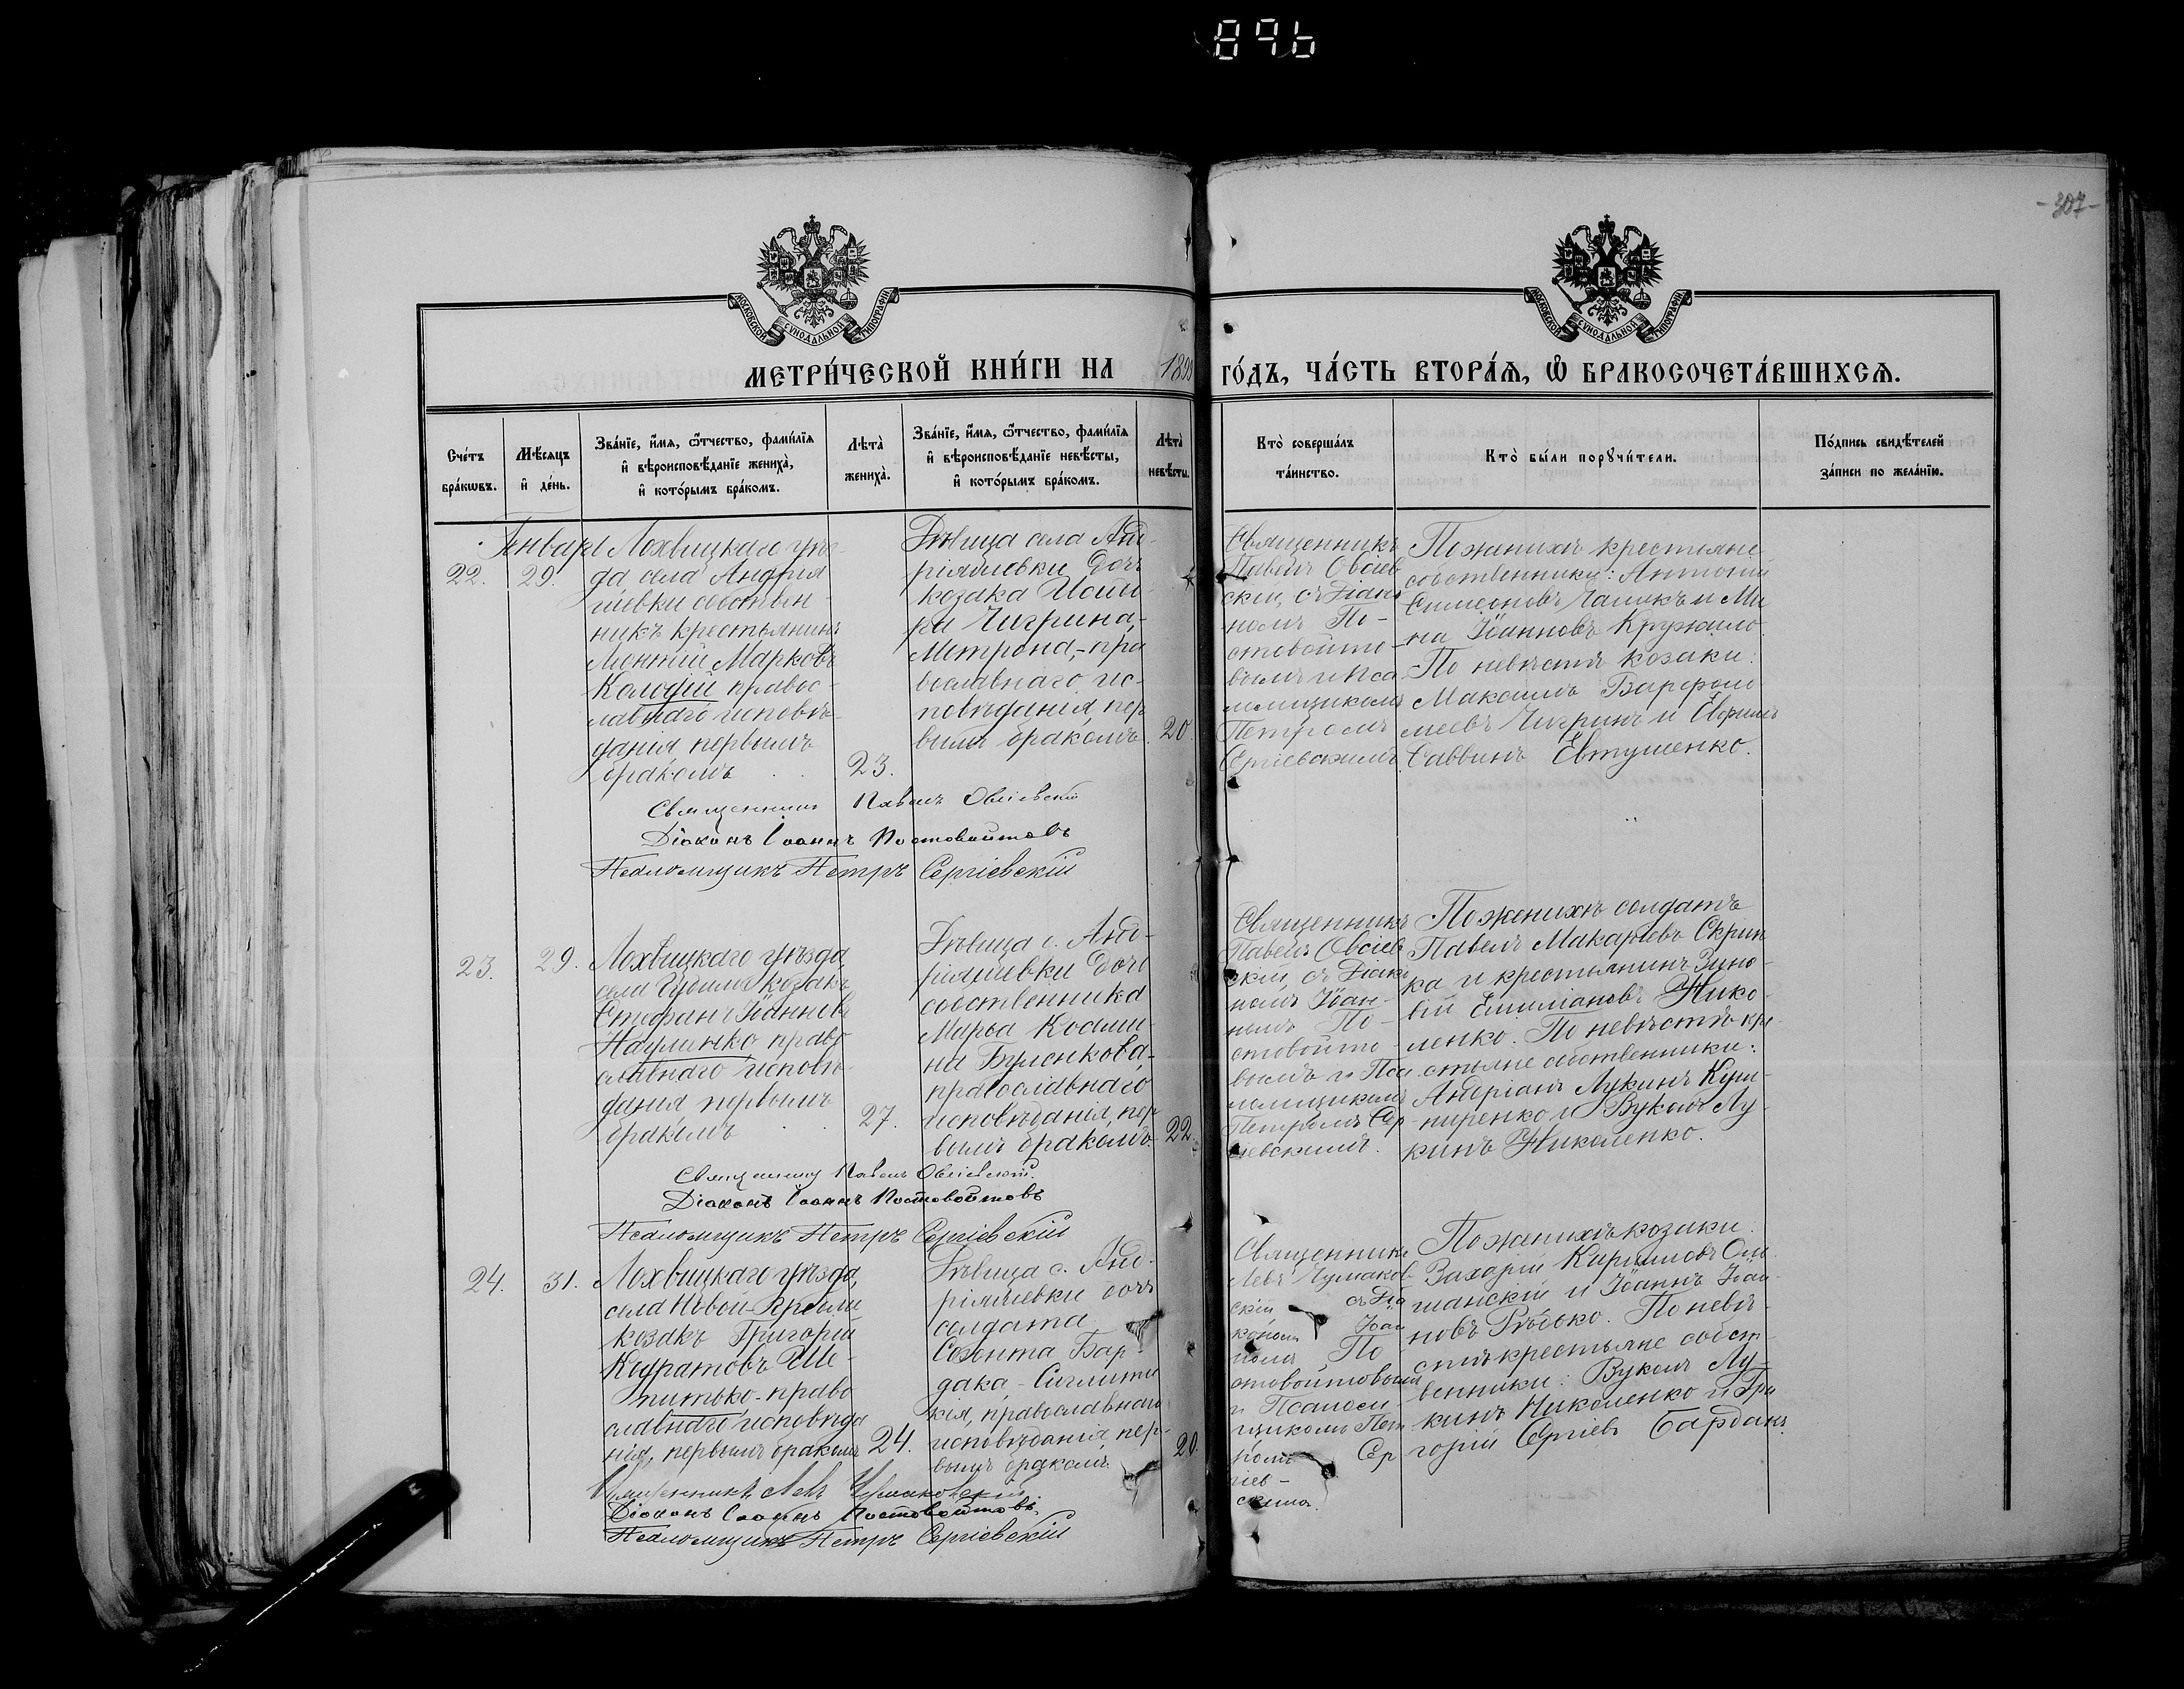 896
-307-
МОСКОВСКОЙ СѴНОДАЛЬНОЙ ТИПОГРАФІИ
МОСКОВСКОЙ СѴНОДАЛЬНОЙ ТИПОГРАФІИ
МЕТРИ́ЧЕСКОЙ КНИ́ГИ НА 1899 ГО́ДЪ, ЧА́СТЬ ВТОРА́Ѧ, Ѽ БРАКОСОЧЕТА́ВШИХСѦ.
Сче́тъ бра́кѡвъ.
Мѣ́сѧцъ и҆ де́нь.
Зва́нїе, и҆́мѧ, ѻ҆́тчество, фами́лїѧ
и҆ вѣроисповѣ́данїе жениха̀,
и҆ кото́рымъ бра́комъ.
Лѣта̀ жениха̀.
Зва́нїе, и҆́мѧ, ѻ҆́тчество, фами́лїѧ
и҆ вѣроисповѣ́данїе невѣ́сты,
и҆ кото́рымъ бра́комъ.
Лѣта̀ невѣ́сты.
Кто̀ соверша́лъ та́инство.
Кто̀ бы́ли порꙋчи́тели.
По́дпись свидѣ́телей за́писи по жела́нїю.
Январь
22.
29.
Лохвицкаго уѣз-
да села Андрія
шевки собствен-
никъ крестьянинъ
Леонтій Марковъ
правос-
лавнаго исповѣ-
данія, первымъ
бракомъ
23.
Дѣвица села Анд-
ріяшевки дочь
козака
Чигрина,
Метрона, - пра
вославнаго, ис-
повѣданія, пер
вымъ бракомъ.
20.
Священникъ
Павелъ Овсіев
скій, съ Діако
номъ По-
стовойто-
вымъ и Пса
ломщикомъ
Петромъ
Сергіевскимъ
По женихѣ крестьяне
собственники: Антоній
Симеоновъ и Ми
на Іоанновъ Кружило
По невѣстѣ козаки:
Максимъ Варфоло
меевъ Чигринъ и Ефимъ
Саввинъ Евтушенко.
Священникъ Павелъ Овсіевскій
Діаконъ Іоаннъ Постовойтовъ
Псаломщикъ Петръ Сергіевскій
23.
29.
Лохвицкаго уѣзда
села козакъ
Стефанъ Іоанновъ
Науменко право
славнаго исповѣ-
данія первымъ
бракомъ
27.
Дѣвица с. Анд-
ріяшевки дочь
собственника
Марѳа Косми-
на
православнаго
исповѣданія, пер
вымъ бракомъ.
22.
Священникъ
Павелъ Овсіев
скій, съ Діако
номъ Іоан-
номъ По-
стовойто-
вымъ и Пса
ломщикомъ
Петромъ Сер
гіевскимъ.
По женихѣ солдатъ
Павелъ Макарьевъ Скрип
ка и крестьянинъ Зино-
вій Емиліановъ Нико-
ленко. По невѣстѣ кре-
стьяне собственники:
Андріанъ Лукинъ Куш-
ниренко и Вуколъ Лу-
кинъ Николенко.
Священникъ Павелъ Овсіевскій.
Діаконъ Іоаннъ Постовойтовъ
Псаломщикъ Петръ Сергіевскій
24.
31.
Лохвицкаго уѣзда,
села Новой Гребли
козакъ Григорій
Кодратовъ Ше-
питько - право
славнаго исповѣда
нія, первымъ бракомъ
24.
Дѣвица с. Анд-
ріяшевки дочь
солдата
Созонта Бар-
дака - Сиглити
кія, православнаго
исповѣданія, пер-
вымъ бракомъ.
20.
Священникъ
Левъ Чумаков
скій съ Діа
кономъ Іоан
номъ По
стовойтовымъ
и Псалом-
щикомъ Пет
ромъ Сер
гіев-
скимъ.
По женихѣ козаки.
Захарій Кирилловъ Оль-
шанскій и Іоаннъ Іоан-
новъ Рѣдько. По невѣ-
стѣ крестьяне собст-
венники: Вуколъ Лу-
кинъ Николенко и Гри
горій Сергіевъ Бардакъ.
Священникъ Левъ Чумаковскій
Діаконъ Іоаннъ Постовойтовъ
Псаломщикъ Петръ Сергіевскій